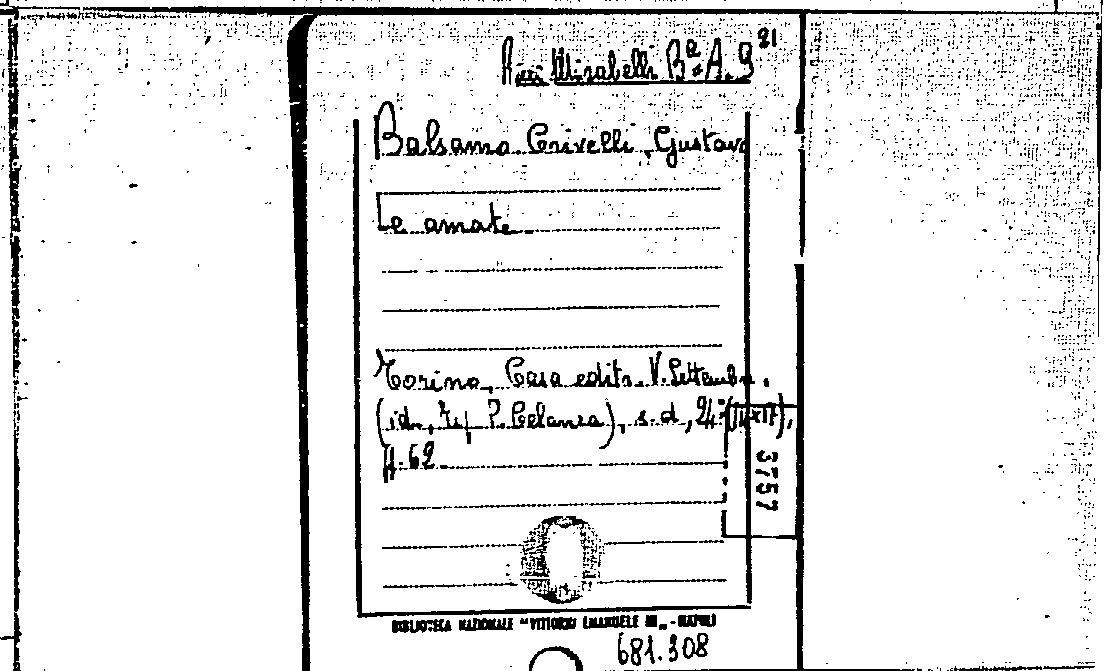 Mirabelli Bª A. 9 21
Balsamo Crivelli, Gustavo
Le amate.
Torino, Casa editr. V. 
(id., Tip. P. Celanza), s.d., 24°
3757
BIBLIOTECA NAZIONALE "VITTORIO EMANUELE III" - NAPOLI
681.308